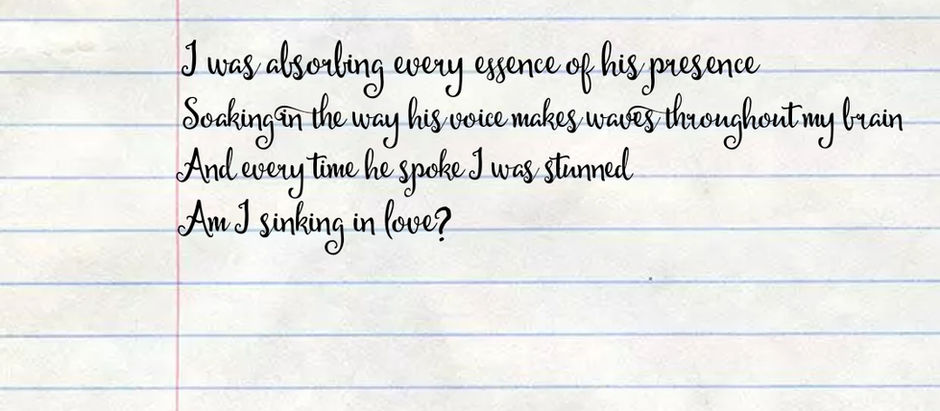 I was absorbing every essence of his presence
Soaking in the way his voice makes waves throughout my brain
And every time he spoke I was stunned
Am I sinking in love?